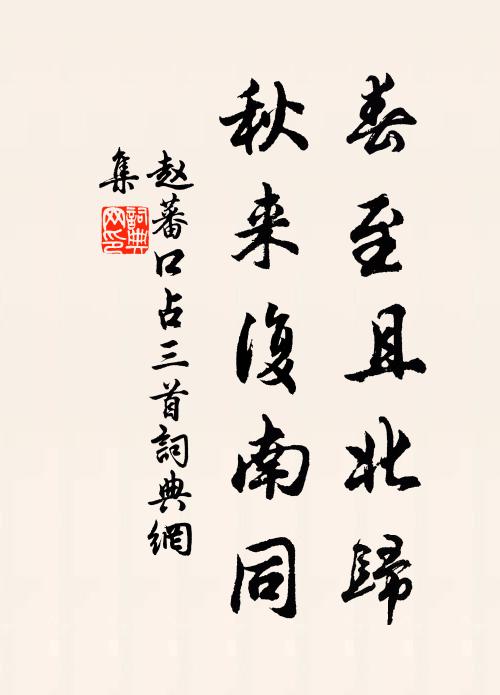 春至且北歸
秋来復南同
赵蕃口占三首詞典網
集
詞典网印